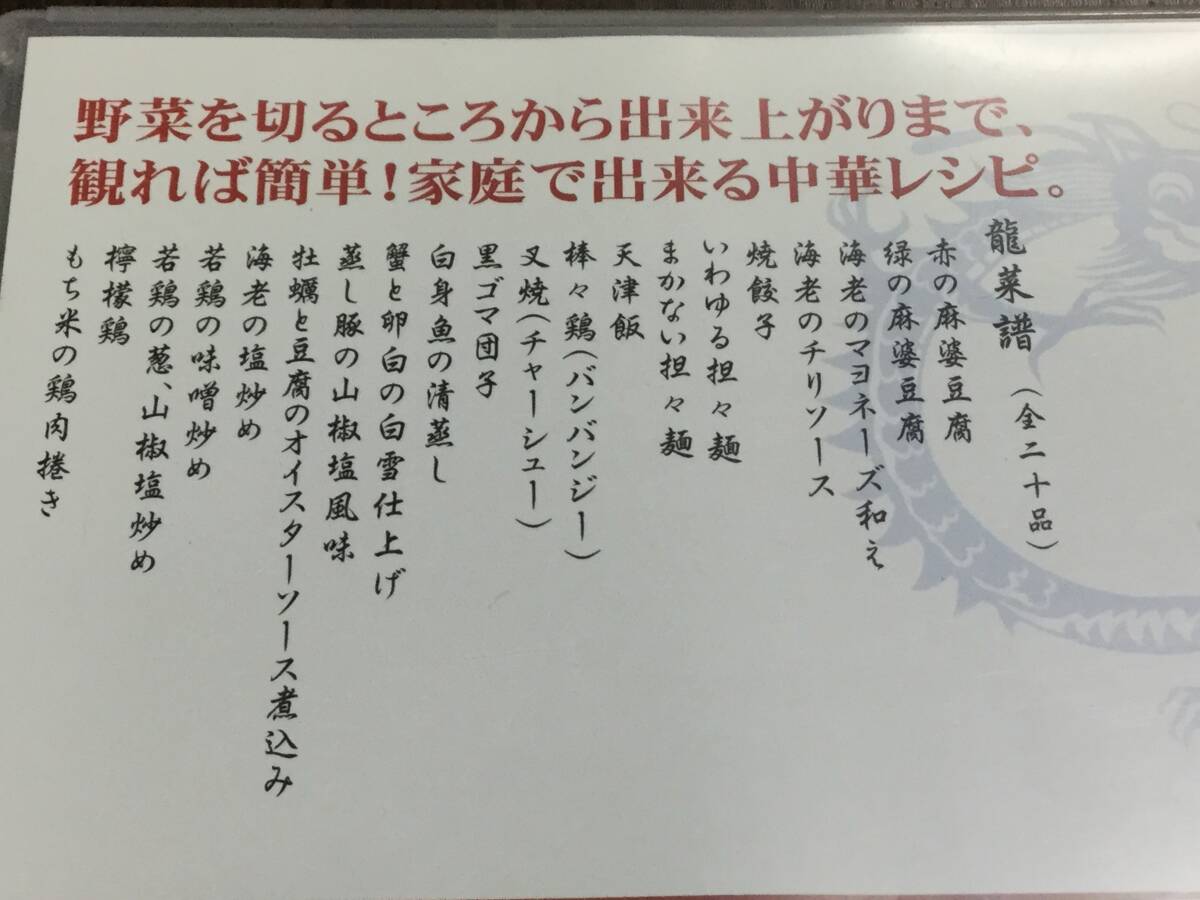 野菜を切るところから出来上がりまで、
観れば簡単！家庭で出来る中華レシピ。
龍菜譜（全二十品）
赤の麻婆豆腐
緑の麻婆豆腐
海老のマヨネーズ和え
海老のチリソース
焼餃子
いわゆる担々麺
まかない担々麺
天津飯
棒々鶏（バンバンジー）
叉焼（チャーシュー）
黒ゴマ団子
白身魚の清蒸し
蟹と卵白の白雪仕上げ
蒸し豚の山椒塩風味
牡蠣と豆腐のオイスターソース煮込み
海老の塩炒め
若鶏の味噌炒め
若鶏の葱、山椒塩炒め
檸檬鶏
もち米の鶏肉捲き